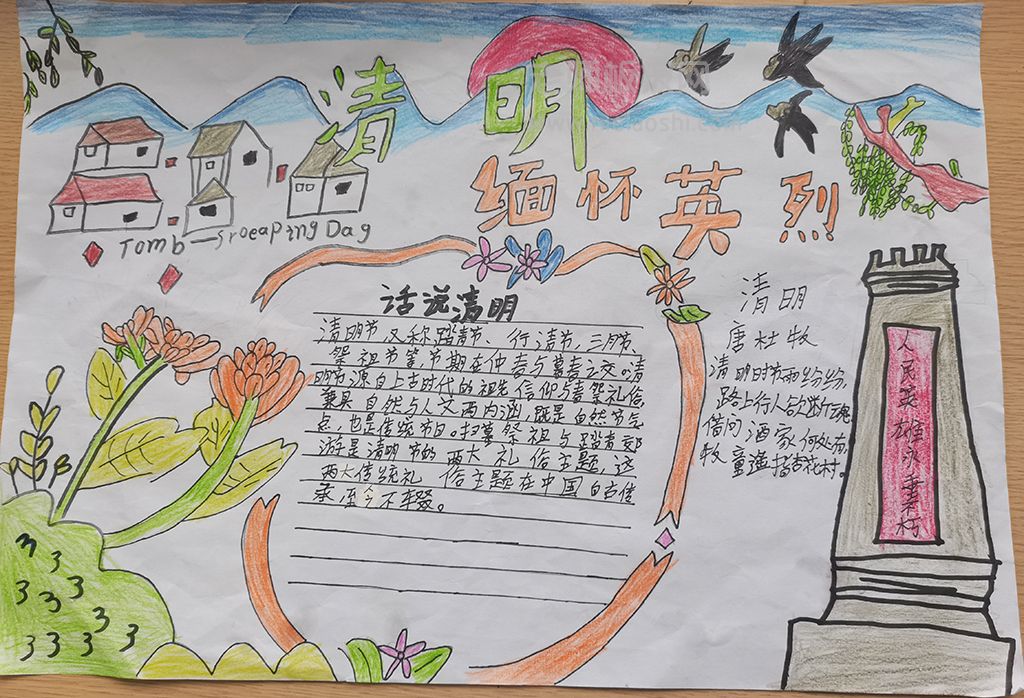 清明
缅怀英烈
Tomb—Sroeaping Dag
话说清明
清明节又称踏青节、行清节、三月节、
祭祖节等,节期在仲春与暮春之交。清
明节源自上古时代的祖先信仰与春祭礼俗
兼具自然与人文两内涵,既是自然节气
点,也是传统节日。扫墓祭祖与踏青郊
游是清明节的两大礼俗主题,这
两大传统礼俗主题在中国自古传
承,至今不辍。
清明
唐杜牧
清明时节雨纷纷,
路上行人欲断魂
借问酒家何处有,
牧童遥指杏花村。
人民英雄永垂朽
3
3
3
3
3
3
3
3
3
3
3